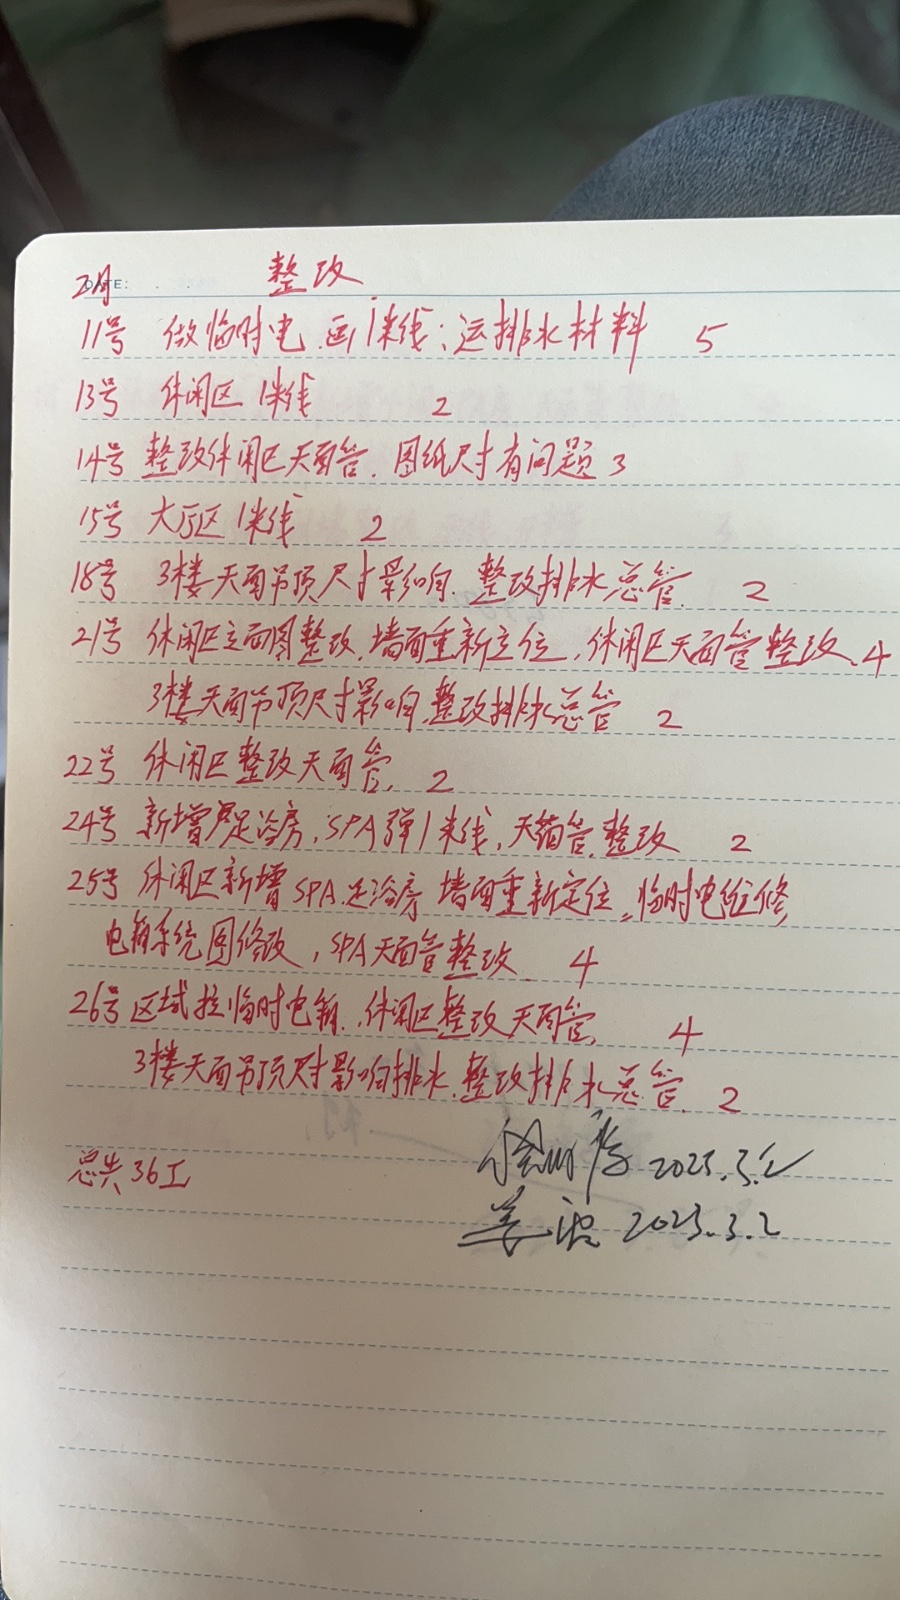 2月 DATE: 整改
11号 做临时电.画1米线;运排水材料 5
13号 休闲区 1米线 2
14号 整改休闲区天面管.图纸尺寸有问题 3
15号 大厅区1米线 2
18号 3楼天面吊顶尺寸影响.整改排水总管. 2
21号 休闲区立面图整改.墙面重新定位,休闲区天面管整改.4
3楼天面吊顶尺寸影响.整改排水总管 2
22号 休闲区整改天面管. 2
24号 新增足浴房.SPA弹1米线,天面管.整改 2
25号 休闲区新增SPA.足浴房 墙面重新定位,临时电维修,
电箱系统图修改,SPA天面管整改 4
26号 区域拉临时电箱.休闲区整改天面管, 4
3楼天面吊顶尺寸影响排水.整改排水总管. 2
总共36工
2023.3.2
2023.3.2